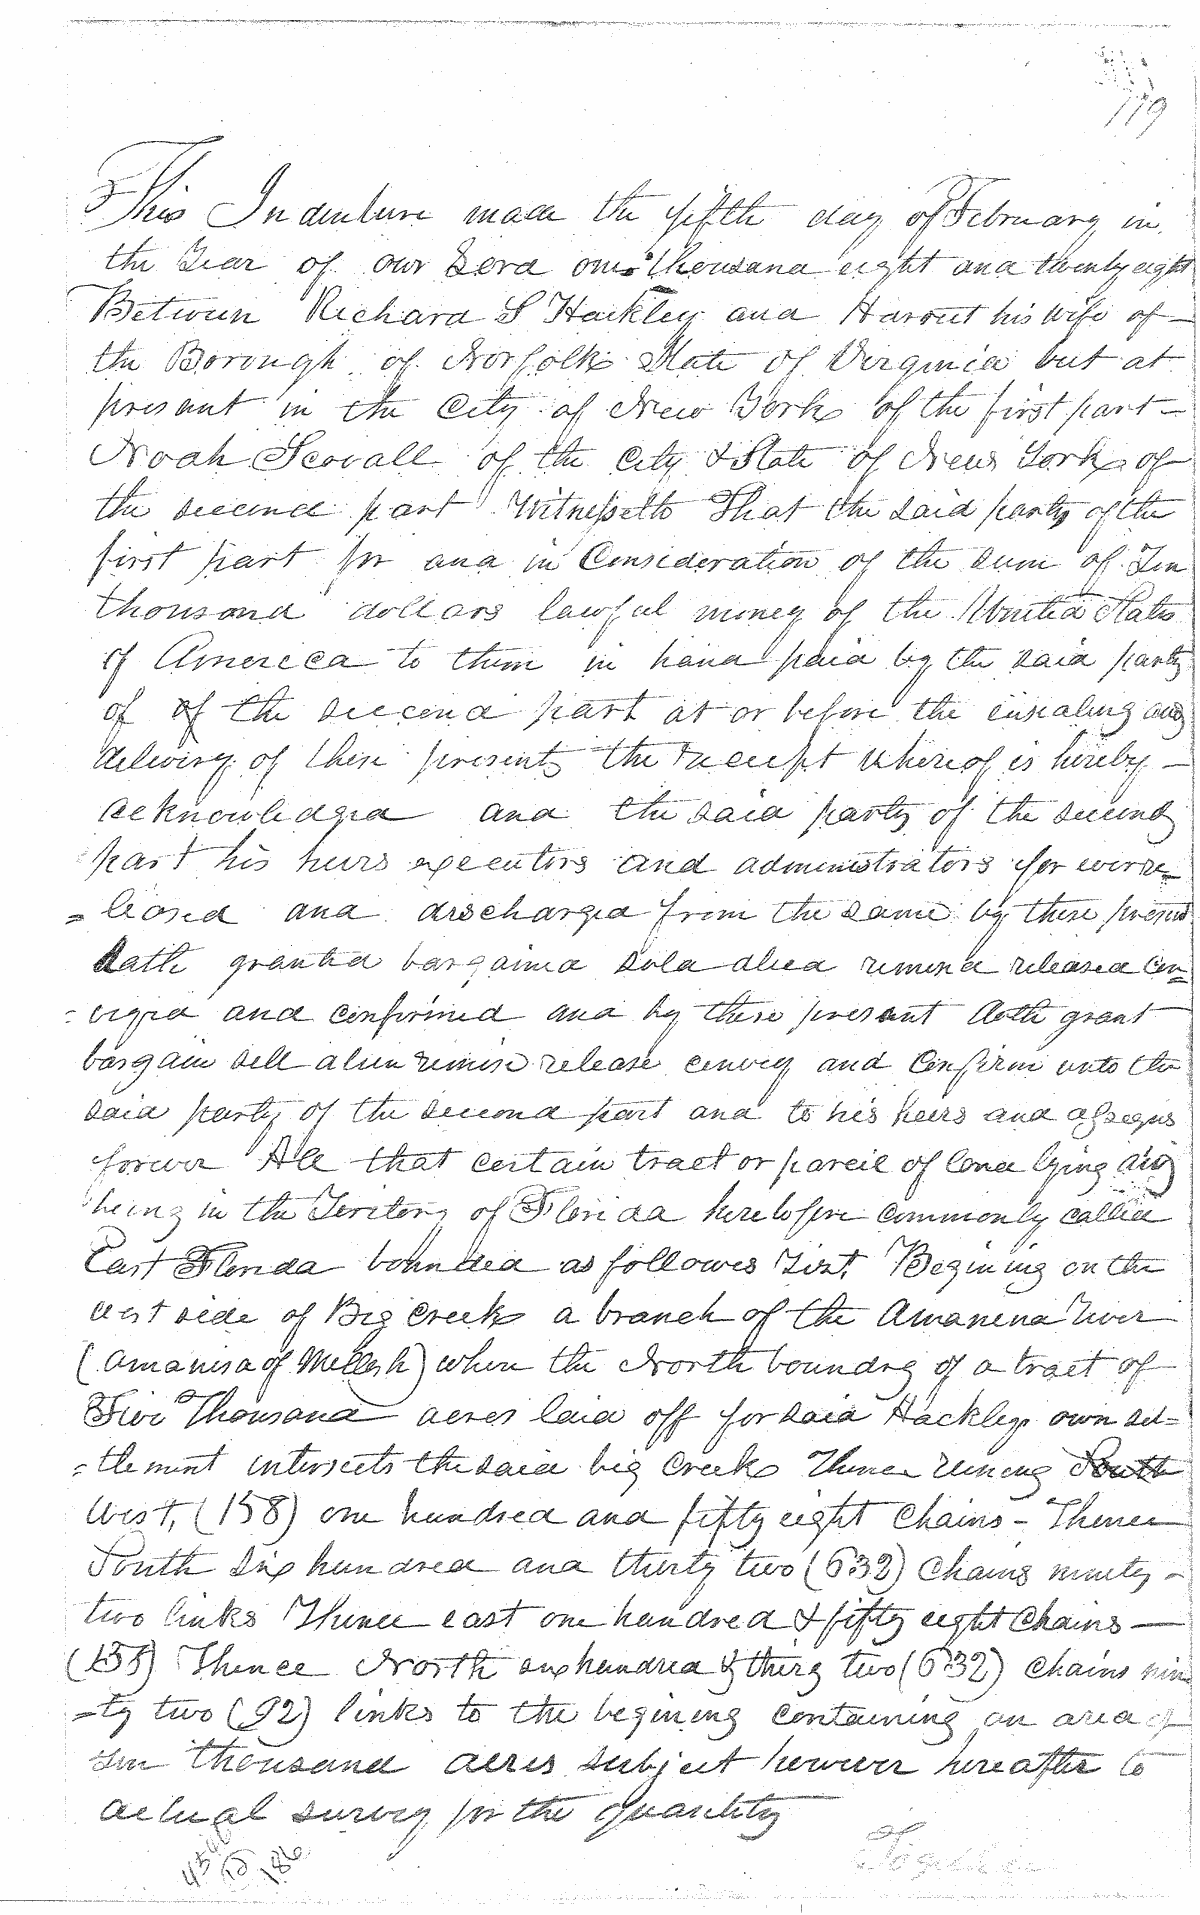 119
This Indenture made the fifth day of February in
the Year of our Lord one thousand eight and twenty eight
Between Richard S Hackley and Harriet his wife of —
the Borough of Norfolk State of Virginia but at
present in the City of New York of the first part —
Noah Scovall of the City & State of New York of
the second part Witnesseth That the said party of the
first part for and in Consideration of the sum of Ten
thousand dollars lawful money of the United States
of America to them in hand paid by the said party
of of the second part at or before the ensealing and
delivery of these presents the receipt whereof is hereby —
acknowledged and the said party of the second
part his heirs executors and administrators for ever re=
=leased and discharged from the same by these presents
hath granted bargained sold aliened remised released con=
=veyed and confirmed and by these present doth grant
bargain sell alien remise release convey and Confirm unto the
said party of the second part and to his heirs and assigns
forever All that certain tract or parcel of land lying and
being in the Teritory of Florida heretofore commonly called
East Florida bounded as followes Vizt. Begining on the
west side of Big Creek a branch of the Amanena River
(Amanisa of Mellish) when the North boundry of a tract of
Five Thousand acres laid off for said Hackleys own set=
=tlement intersects the said big Creek Thence runing South
West, (158) one hundred and fifty eight Chains — Thence
South six hundred and thirty two (632) Chains ninety —
two links Thence east one hundred & fifty eight Chains —
(158) Thence North six hundred & thirty two (632) Chains nin
=ty two (92) links to the begining containing an area of
ten thousand acres subject however hereafter to
actual survey for the quantity
of
Together